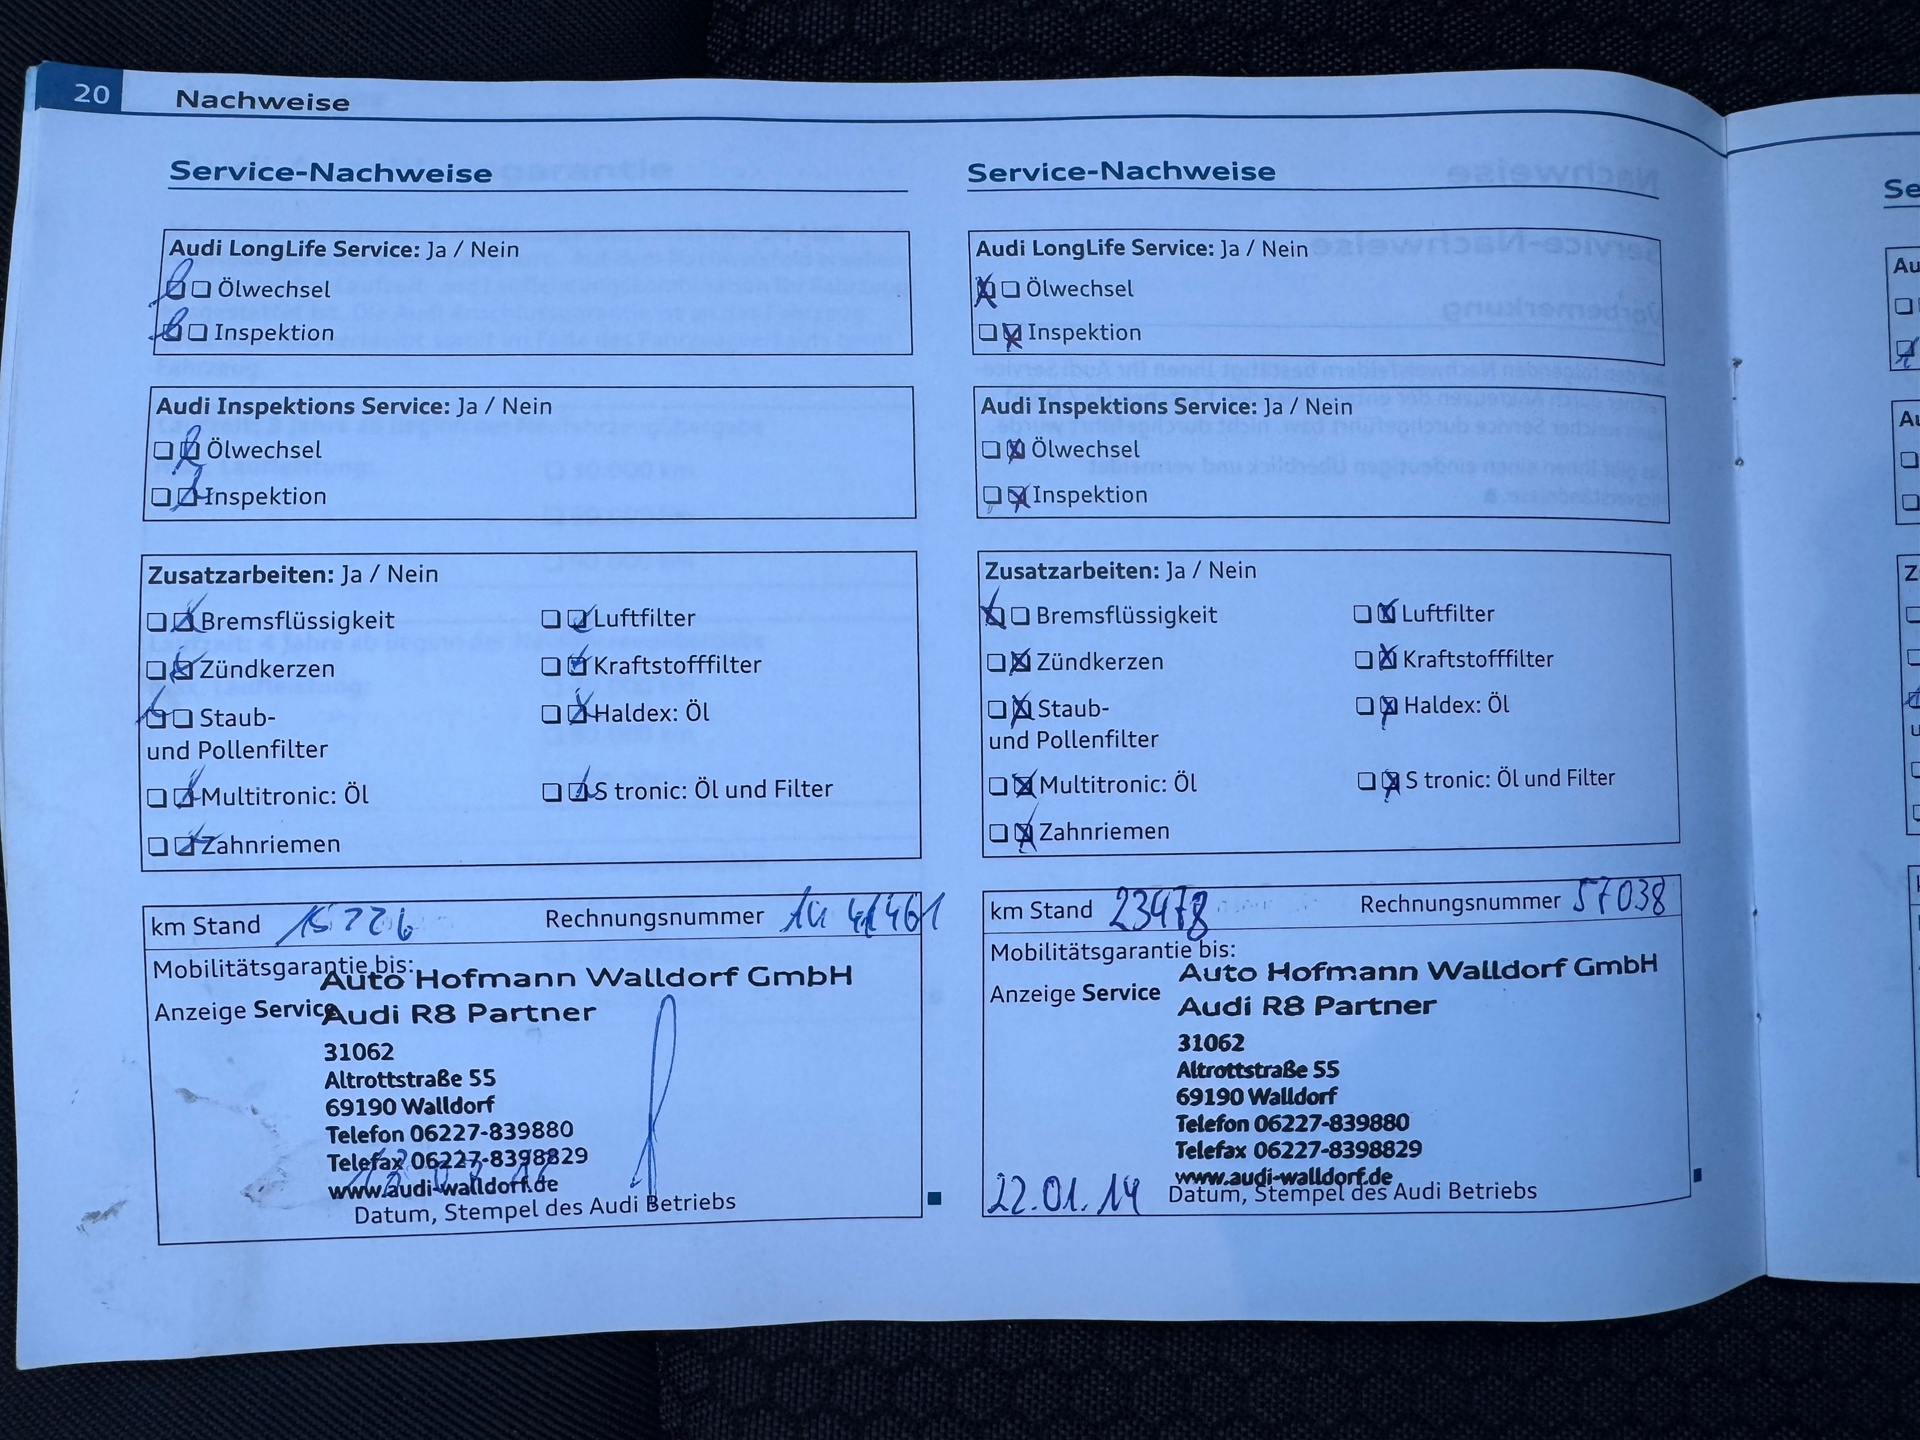 20 Nachweise
Service-Nachweise
Audi LongLife Service: Ja / Nein
Ölwechsel
Inspektion
Audi Inspektions Service: Ja / Nein
Ölwechsel
Inspektion
Zusatzarbeiten: Ja / Nein
Bremsflüssigkeit Luftfilter
Zündkerzen Kraftstofffilter
Staub- Haldex: Öl
und Pollenfilter
Multitronic: Öl S tronic: Öl und Filter
Zahnriemen
km Stand 15226 Rechnungsnummer
Mobilitätsgarantie bis:
Auto Hofmann Walldorf GmbH
Anzeige Service
Audi R8 Partner
31062
Altrottstraße 55
69190 Walldorf
Telefon 06227-839880
Telefax 06227-8398829
www.audi-walldorf.de
Datum, Stempel des Audi Betriebs
Service-Nachweise
Audi LongLife Service: Ja / Nein
Ölwechsel
Inspektion
Audi Inspektions Service: Ja / Nein
Ölwechsel
Inspektion
Zusatzarbeiten: Ja / Nein
Bremsflüssigkeit Luftfilter
Zündkerzen Kraftstofffilter
Staub- Haldex: Öl
und Pollenfilter
Multitronic: Öl S tronic: Öl und Filter
Zahnriemen
km Stand 23478 Rechnungsnummer 57038
Mobilitätsgarantie bis:
Auto Hofmann Walldorf GmbH
Anzeige Service
Audi R8 Partner
31062
Altrottstraße 55
69190 Walldorf
Telefon 06227-839880
Telefax 06227-8398829
www.audi-walldorf.de
22.01.14 Datum, Stempel des Audi Betriebs